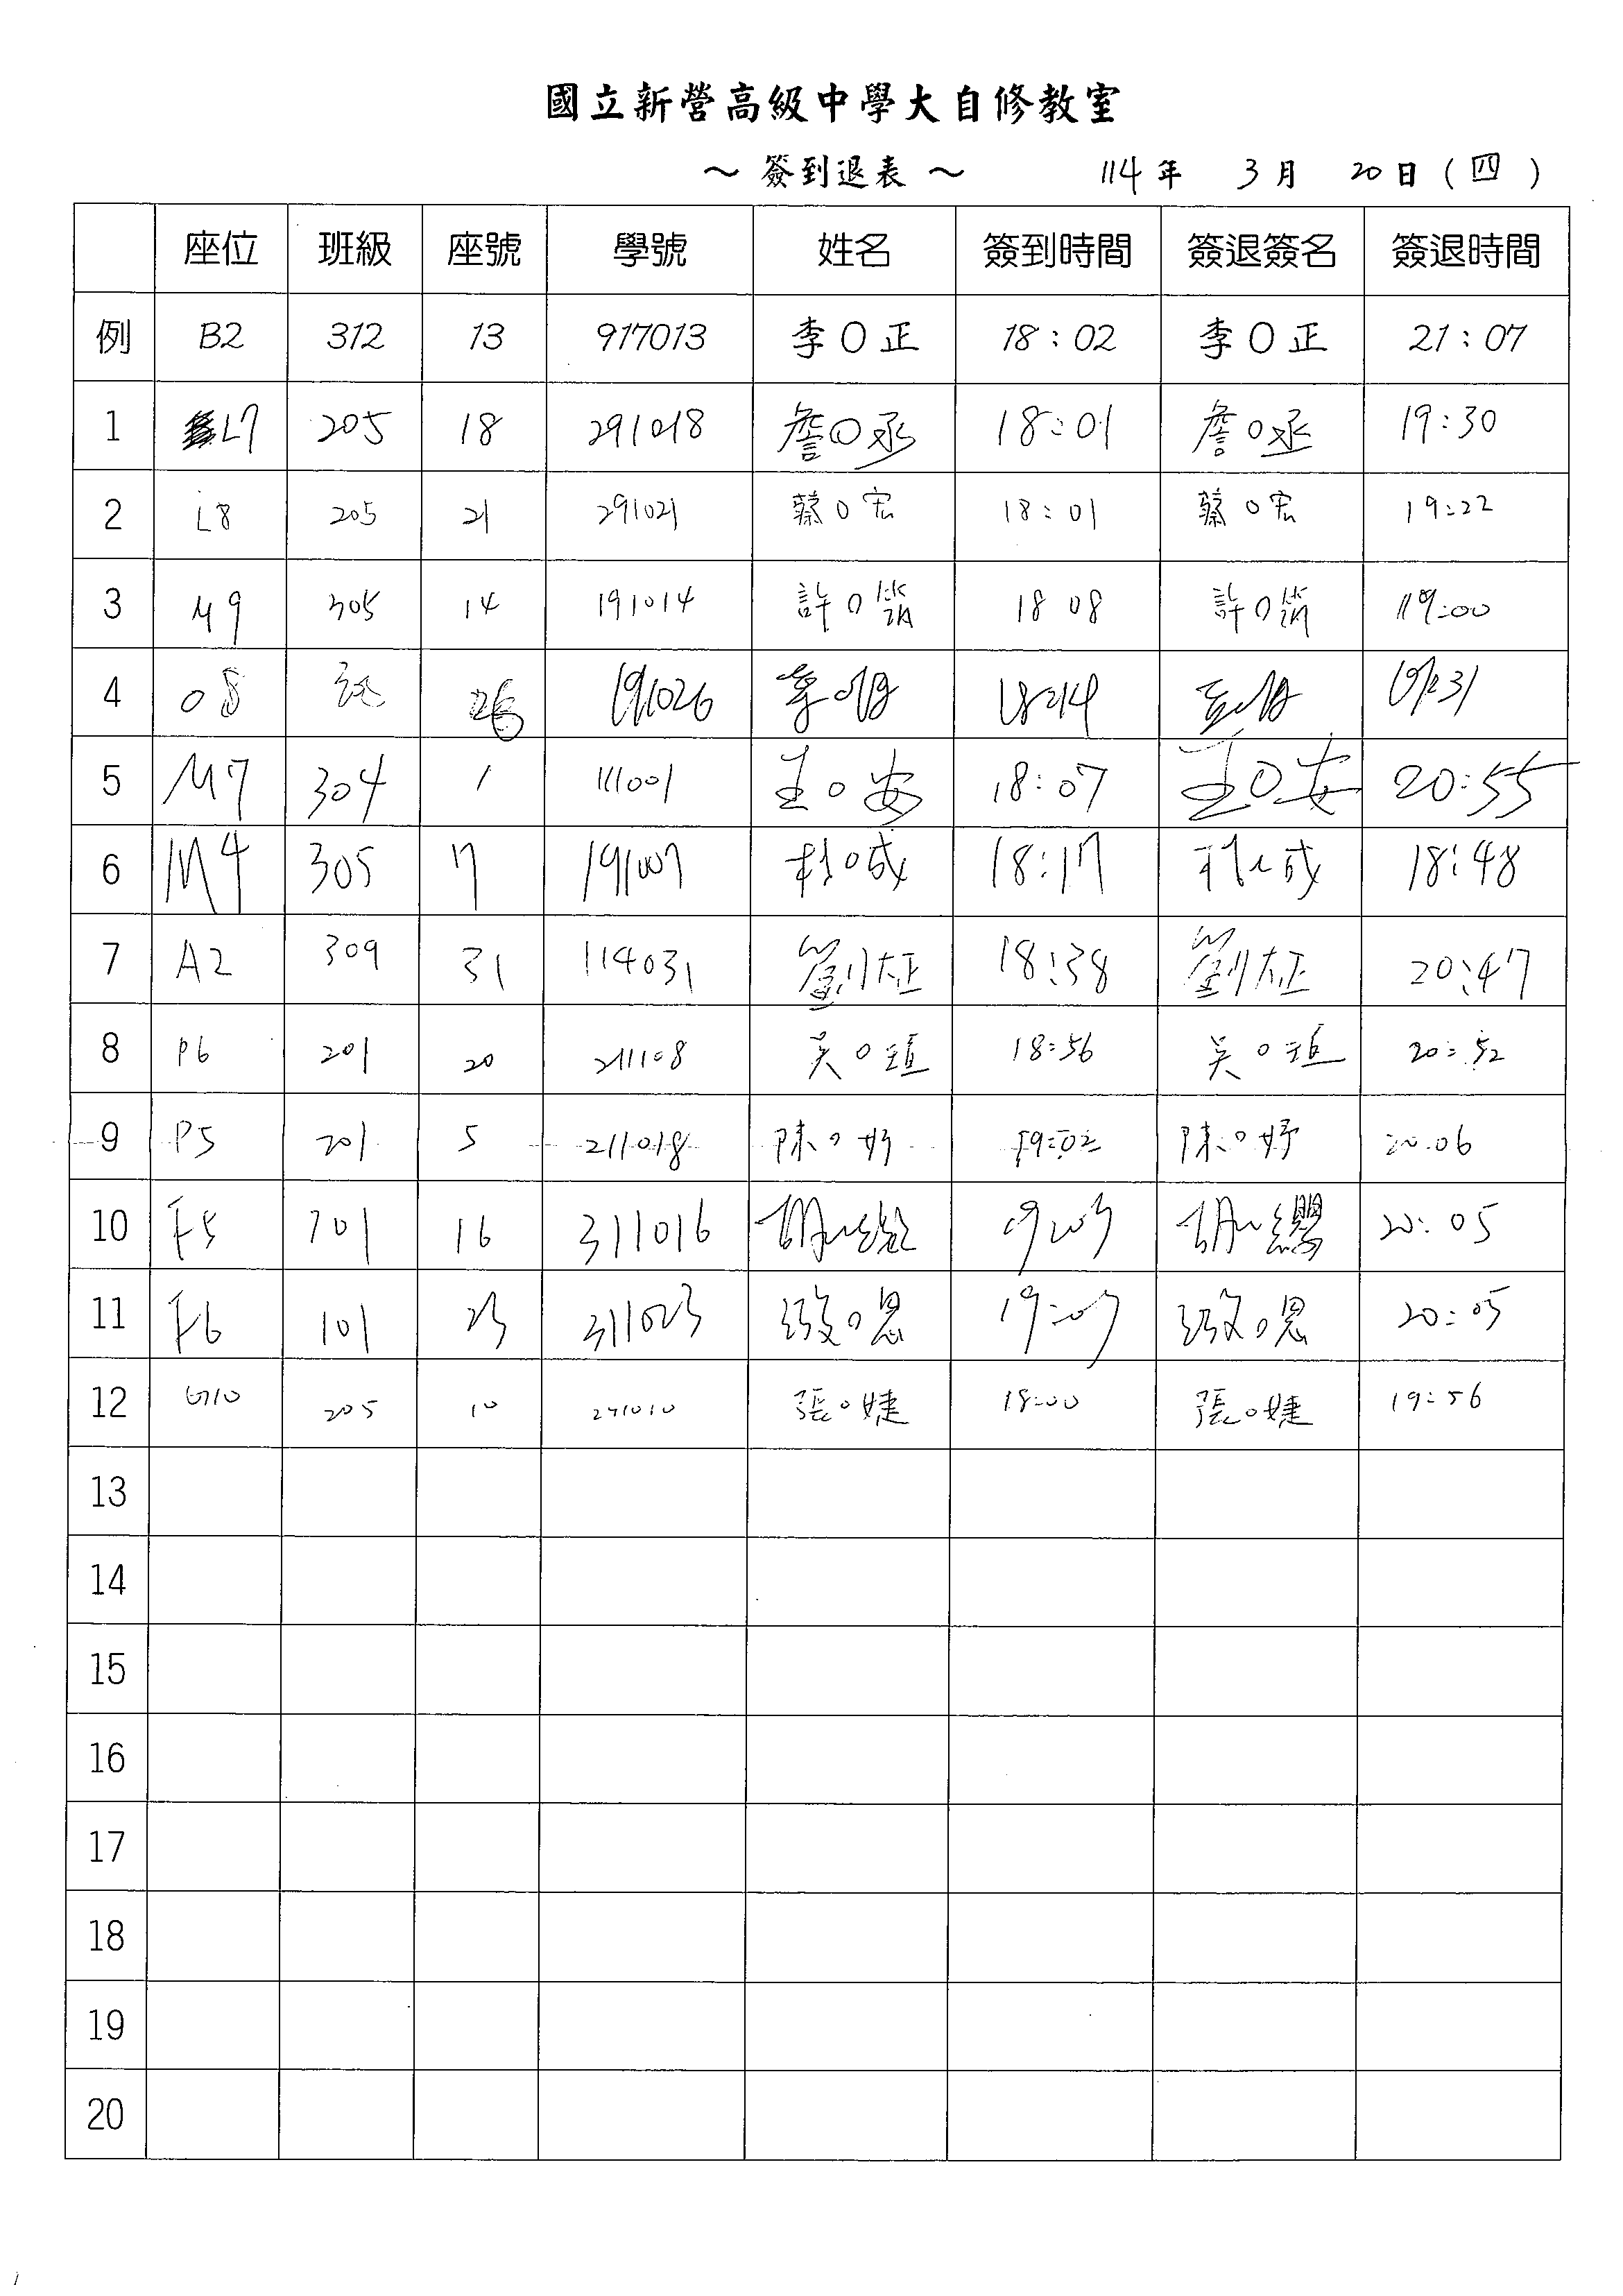 國立新營高級中學大自修教室
～ 簽到退表 ～ 114 年 3 月 20 日 ( 四 )
座位 班級 座號 學號 姓名 簽到時間 簽退簽名 簽退時間
例 B2 312 13 917013 李O正 18:02 李O正 21:07
1 L7 205 18 291018 詹O丞 18:01 詹O丞 19:30
2 L8 205 21 291021 蔡O宏 18:01 蔡O宏 19:22
3 M9 305 14 191014 許O 18 08 許O 19:00
4 O8 26 191026 李O 18:14 19:31
5 M7 304 1 111001 王O安 18:07 王O安 20:55
6 M4 305 7 191007 杜O成 18:17 杜O成 18:48
7 A2 309 31 114031 劉 正 18:38 劉 正 20:47
8 P6 201 20 211108 吴O 18:56 吴O 20:52
9 P5 201 5 211018 陳O妤 19:02 陳O妤 20:06
10 F5 101 16 311016 胡O 19:03 胡O纓 20:05
11 F6 101 23 311023 O恩 19:03 O恩 20:05
12 G10 205 10 291010 張O婕 18:00 張O婕 19:56
13
14
15
16
17
18
19
20